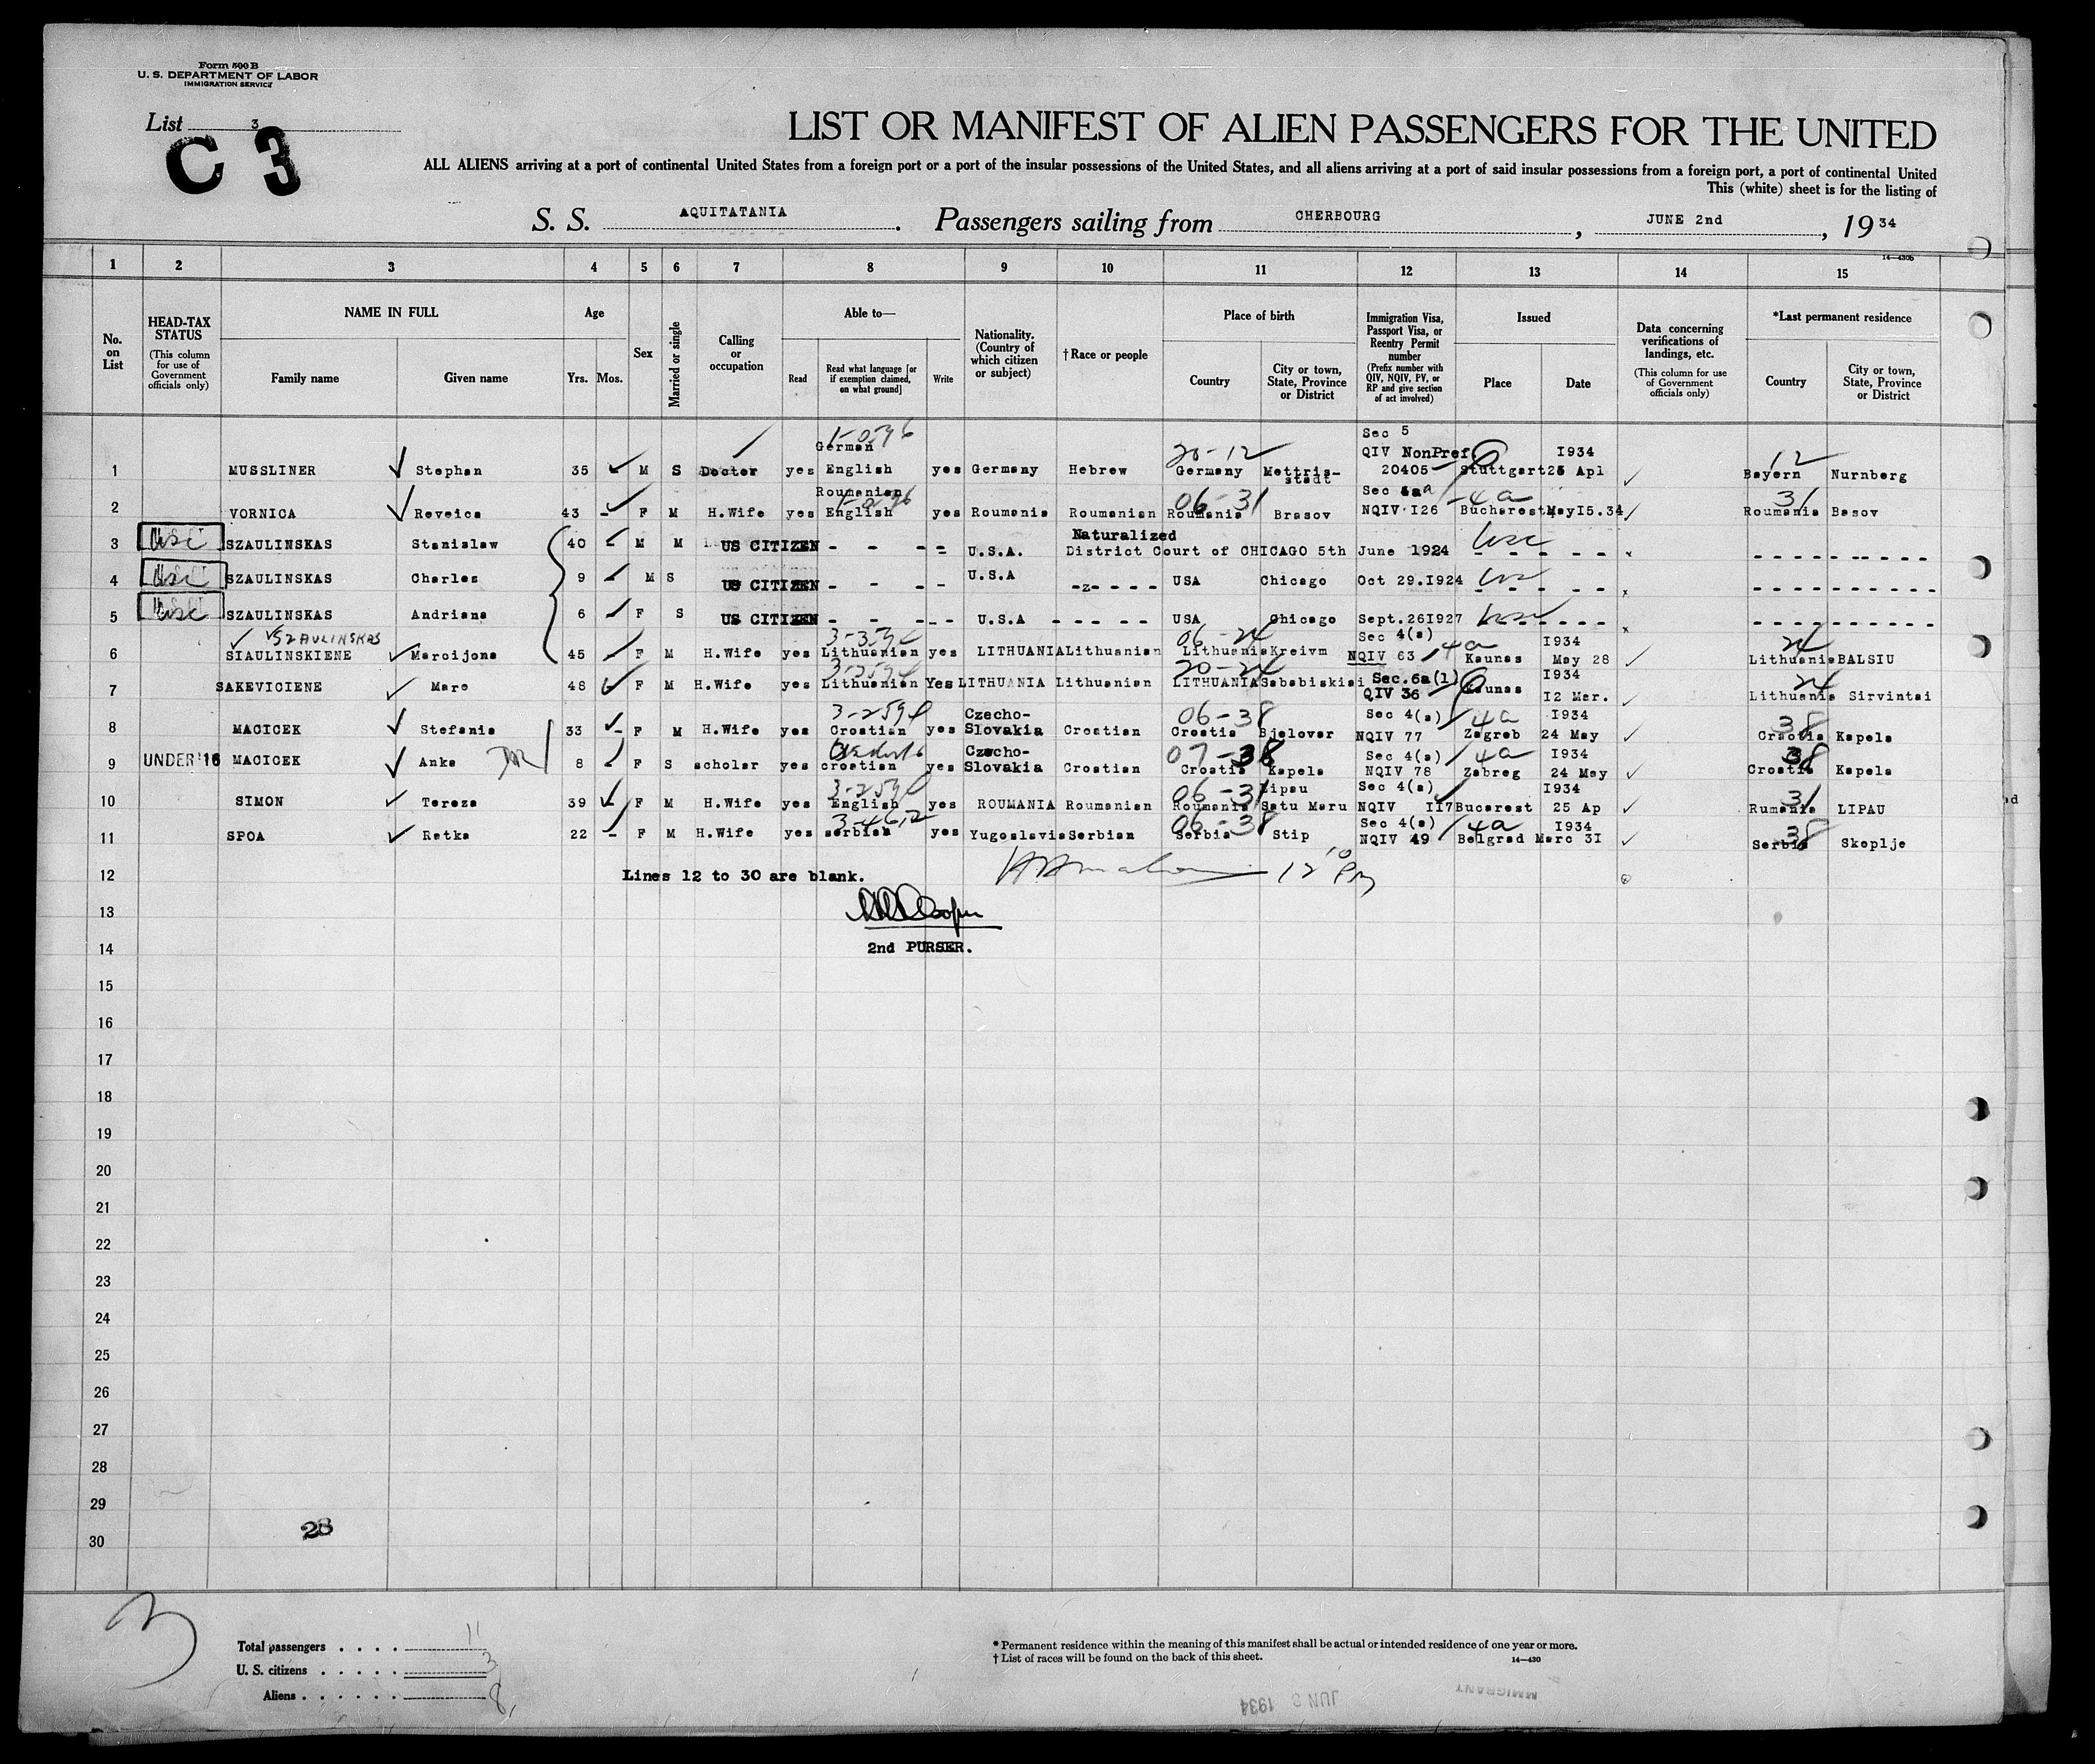 Form 500 B
U. S. DEPARTMENT OF LABOR
IMMIGRATION SERVICE
List 3
C 3
LIST OR MANIFEST OF ALIEN PASSENGERS FOR THE UNITED
ALL ALIENS arriving at a port of continental United States from a foreign port or a port of the insular possessions of the United States, and all aliens arriving at a port of said insular possessions from a foreign port, a port of continental United
This (white) sheet is for the listing of
S. S. AQUITATANIA. Passengers sailing from CHERBOURG, JUNE 2nd, 19 34
14—430b
1 2 3 4 5 6 7 8 9 10 11 12 13 14 15
No. on List
HEAD-TAX STATUS (This column for use of Government officials only)
NAME IN FULL
Family name Given name
Age
Yrs. Mos.
Sex
Married or single
Calling or occupation
Able to—
Read Read what language [or if exemption claimed, on what ground] Write
Nationality. (Country of which citizen or subject)
†Race or people
Place of birth
Country City or town, State, Province or District
Immigration Visa, Passport Visa, or Reentry Permit number (Prefix number with QIV, NQIV, PV, or RP and give section of act involved)
Issued
Place Date
Data concerning verifications of landings, etc. (This column for use of Government officials only)
*Last permanent residence
Country City or town, State, Province or District
German 20-12 Sec 5 QIV NonPref I934 12
1 MUSSLINER Stephan 35 M S Doctor yes English yes Germany Hebrew Germany Mettris-stadt 20405 Stuttgart 25 Apl Bayern Nurnberg
Roumanian 06-31 Sec 4a 4a 31
2 VORNICA Reveica 43 - F M H.Wife yes English yes Roumania Roumanian Roumania Brasov NQIV I26 Bucharest MayI5.34 Roumania Basov
Naturalized
3 usc SZAULINSKAS Stanislaw 40 M M US CITIZEN - - - = U.S.A. District Court of CHICAGO 5th June 1924 usc
4 usc SZAULINSKAS Charles 9 M S US CITIZEN - - - - U.S.A -z- - - - USA Chicago Oct 29.I924 usc
5 usc SZAULINSKAS Andriana 6 F S US CITIZEN - - - - - U.S.A - - - - - USA Chicago Sept.26I927 usc
SZAULINSKAS 06-24 Sec 4(a) 4a I934 24
6 SIAULINSKIENE Marcijona 45 F M H.Wife yes Lithuanian yes LITHUANIA Lithuanian Lithuania Kreivm NQIV 63 Kaunas May 28 Lithuania BALSIU
20-24 Sec.6a(1) I934 24
7 SAKEVICIENE Mare 48 F M H.Wife yes Lithuanian Yes LITHUANIA Lithuanian LITHUANIA Sababiskiai QIV 36 Kaunas I2 Mar. Lithuania Sirvintai
Czecho- 06-38 Sec 4(a) 4a I934 38
8 MACICEK Stefania 33 - F M H.Wife yes Croatian yes Slovakia Croatian Croatia Bjelovar NQIV 77 Zagreb 24 May Craotia Kapela
Czecho- 07-38 Sec 4(a) 4a I934 38
9 UNDER 16 MACICEK Anka 8 F S scholar yes croatian yes Slovakia Croatian Croatia Kapela NQIV 78 Zabreg 24 May Croatia Kapela
06-31 Lipau Sec 4(a) I934 31
10 SIMON Tereza 39 F M H.Wife yes English yes ROUMANIA Roumanian Roumania Satu Maru NQIV II7 Bucarest 25 Ap Rumania LIPAU
06-38 Sec 4(a) 4a I934 38
11 SPOA Ratka 22 - F M H.Wife yes serbian yes Yugoslavia Serbian Serbia Stip NQIV 49 Belgrad Marc 3I Serbia Skoplje
12 Lines 12 to 30 are blank. 12 10 PM
13
14 2nd PURSER.
15
16
17
18
19
20
21
22
23
24
25
26
27
28
29
28
30
3
Total passengers . . . . 11
U. S. citizens . . . . . 3
Aliens . . . . . . 8
* Permanent residence within the meaning of this manifest shall be actual or intended residence of one year or more.
† List of races will be found on the back of this sheet.
14—430